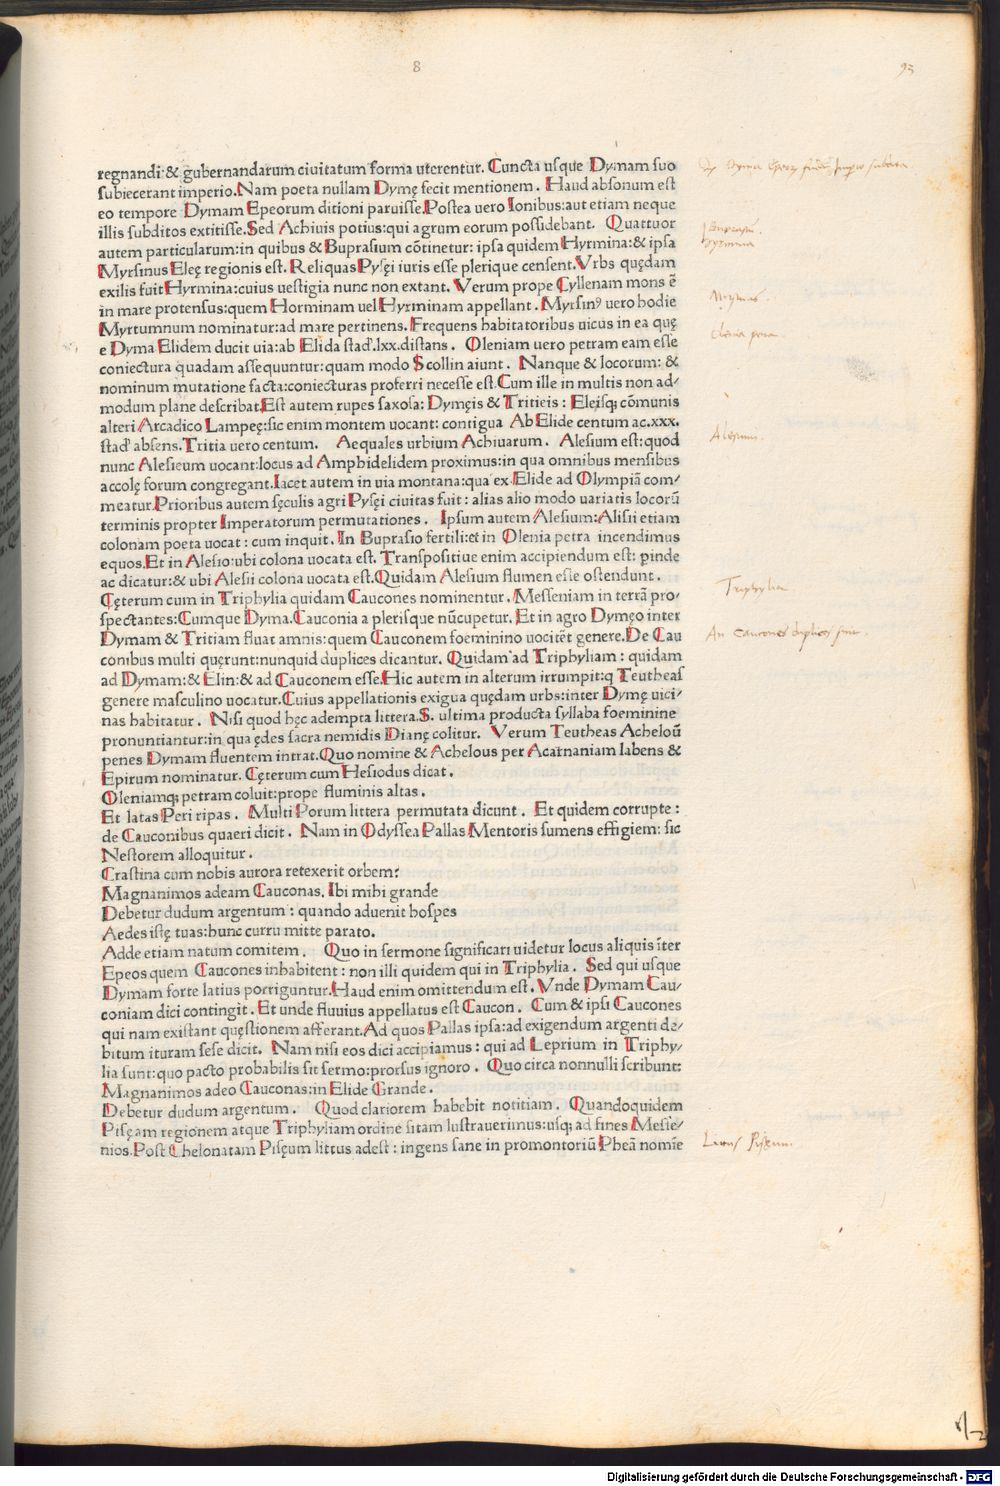 8
93
regnandi:& gubernandarum ciuitatum forma uterentur. Cuncta usque Dymam suo
subiecerant imperio.Nam poeta nullam Dymę fecit mentionem. Haud absonum est
eo tempore Dymam Epeorum ditioni paruisse.Postea uero Ionibus:aut etiam neque
illis subditos extitisse.Sed Achiuis potius:qui agrum eorum possidebant. Quattuor
autem particularum:in quibus & Buprasium cōtinetur: ipsa quidem Hyrmina:& ipsa
Myrsinus Eleę regionis est. Reliquas Pysęi iuris esse plerique censent.Vrbs quędam
exilis fuit Hyrmina:cuius uestigia nunc non extant. Verum prope Cyllenam mons ē
in mare protensus:quem Horminam uel Hyrminam appellant. Myrsinꝰ uero hodie
Myrtumnum nominatur:ad mare pertinens. Frequens habitatoribus uicus in ea quę
e Dyma Elidem ducit uia:ab Elida stad'.lxx.distans. Oleniam uero petram eam esse
coniectura quadam assequuntur:quam modo Scollin aiunt. Nanque & locorum: &
nominum mutatione facta:coniecturas proferri necesse est.Cum ille in multis non ad/
modum plane describat.Est autem rupes saxosa: Dymęis & Tritieis: Eleisqꝫ cōmunis
alteri Arcadico Lampeę:sic enim montem uocant: contigua Ab Elide centum ac.xxx.
stad' absens.Tritia uero centum. Aequales urbium Achiuarum. Alesium est:quod
nunc Alesieum uocant:locus ad Amphidelidem proximus:in qua omnibus mensibus
accolę forum congregant.Iacet autem in uia montana:qua ex Elide ad Olympiā com/
meatur.Prioribus autem sęculis agri Pysęi ciuitas fuit: alias alio modo uariatis locorū
terminis propter Imperatorum permutationes. Ipsum autem Alesium:Alisii etiam
colonam poeta uocat: cum inquit. In Buprasio fertili:et in Olenia petra incendimus
equos.Et in Alesio:ubi colona uocata est. Transpositiue enim accipiendum est: ꝓinde
ac dicatur:& ubi Alesii colona uocata est.Quidam Alesium flumen esse ostendunt.
Cęterum cum in Triphylia quidam Caucones nominentur. Messeniam in terrā pro/
spectantes:Cumque Dyma.Cauconia a plerisque nūcupetur. Et in agro Dymęo inter
Dymam & Tritiam fluat amnis:quem Cauconem foeminino uocitēt genere.De Cau
conibus multi quęrunt:nunquid duplices dicantur. Quidam ad Triphyliam: quidam
ad Dymam:& Elin:& ad Cauconem esse.Hic autem in alterum irrumpit:q Teutheas
genere masculino uocatur.Cuius appellationis exigua quędam urbs:inter Dymę uici/
nas habitatur. Nisi quod hęc adempta littera.S. ultima producta syllaba foeminine
pronuntiantur:in qua ędes sacra nemidis Dianę colitur. Verum Teutheas Acheloū
penes Dymam fluentem intrat.Quo nomine & Achelous per Acarnaniam labens &
Epirum nominatur. Cęterum cum Hesiodus dicat.
Oleniamqꝫ petram coluit:prope fluminis altas.
Et latas Peri ripas. Multi Porum littera permutata dicunt. Et quidem corrupte:
de Cauconibus quaeri dicit. Nam in Odyssea Pallas Mentoris sumens effigiem: sic
Nestorem alloquitur.
Crastina cum nobis aurora retexerit orbem:
Magnanimos adeam Cauconas. Ibi mihi grande
Debetur dudum argentum: quando aduenit hospes
Aedes istę tuas:hunc curru mitte parato.
Adde etiam natum comitem. Quo in sermone significari uidetur locus aliquis īter
Epeos quem Caucones inhabitent: non illi quidem qui in Triphylia. Sed qui usque
Dymam forte latius porriguntur.Haud enim omittendum est. Vnde Dymam Cau/
coniam dici contingit. Et unde fluuius appellatus est Caucon. Cum & ipsi Caucones
qui nam existant quęstionem afferant.Ad quos Pallas ipsa:ad exigendum argenti de/
bitum ituram sese dicit. Nam nisi eos dici accipiamus: qui ad Leprium in Triphy/
lia sunt:quo pacto probabilis sit sermo:prorsus ignoro. Quo circa nonnulli scribunt:
Magnanimos adeo Cauconas:in Elide Grande.
Debetur dudum argentum. Quod clariorem habebit notitiam. Quandoquidem
Pisęam regionem atque Triphyliam ordine sitam lustrauerimus:usqꝫ ad fines Messe/
nios.Post Chelonatam Pisęum littus adest: ingens sane in promontoriū Pheā nomīe
Buprasium.
hyrminia
Olenia petra.
Alesium.
Triphylia
An Caucones duplices sint.
Litus Pisęum.
Digitalisierung gefördert durch die Deutsche Forschungsgemeinschaft - DFG